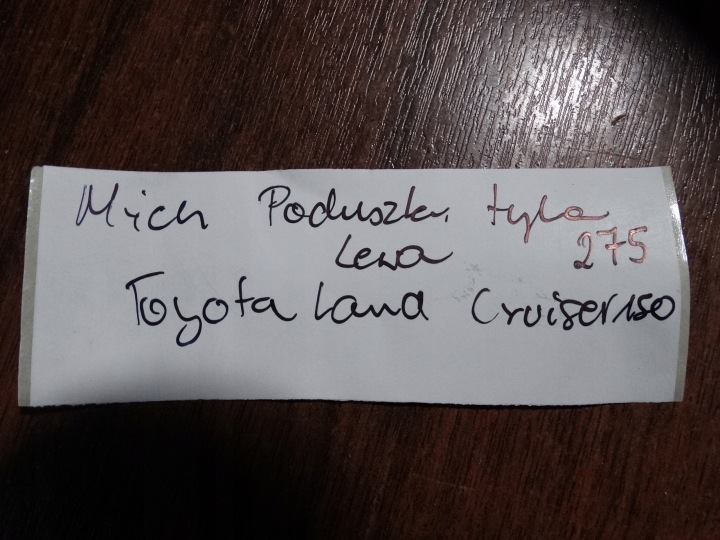 Mich Poduszka tyla
Lewa 275
Toyota Land Cruiser 150